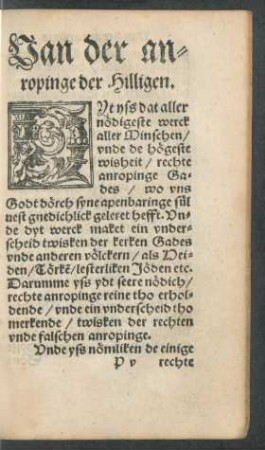 Van der an⸗
ropinge der Hilligen.
DYt yſs dat aller
nödigeſte werck
aller Minſchen/
vnde de högeſte
wisheit / rechte
anropinge Ga⸗
des / wo vns
Godt dörch ſyne apenbaringe ſül
ueſt gnedichlick geleret hefft. Vn⸗
de dyt werck maket ein vnder⸗
ſcheid twisken der kerken Gades
vnde anderen völckern / als Hei⸗
den/Törkē/leſterliken Jöden etc.
Darumme yſs ydt ſeere nödich/
rechte anropinge reine tho erhol⸗
dende / vnde ein vnderſcheid tho
merkende / twisken der rechten
vnde falſchen anropinge.
Vnde yſs nömliken de einige
P v rechte